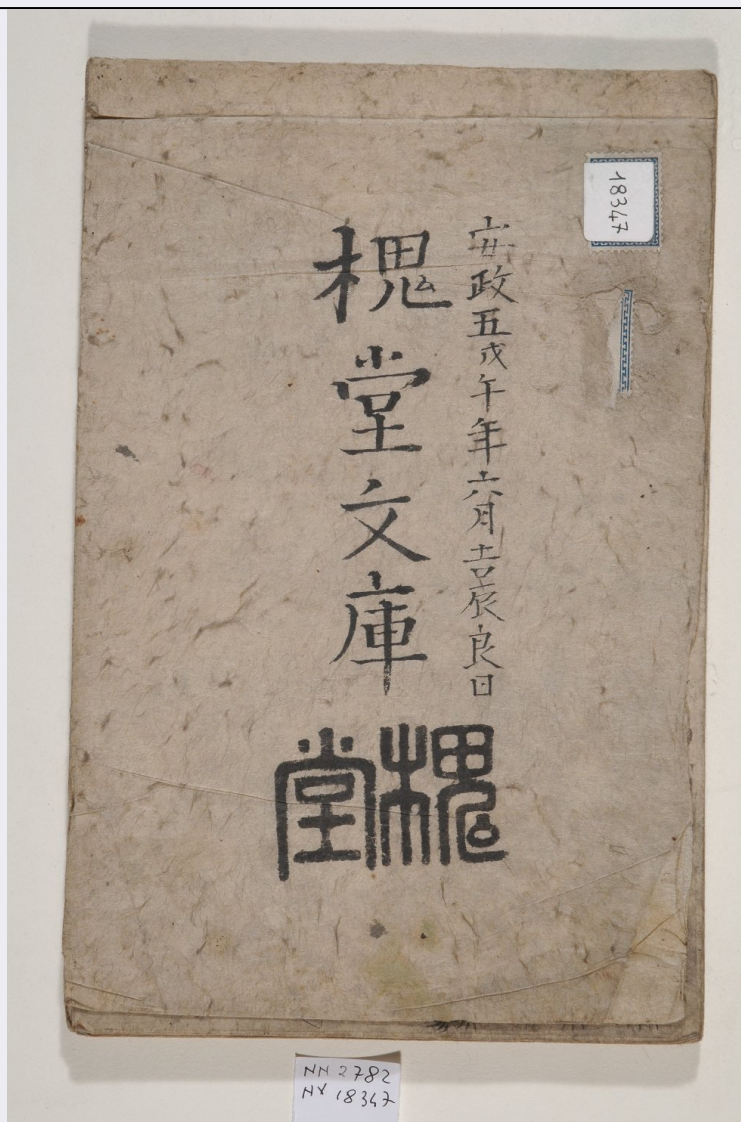 18347
安政五戊午年六月吉辰良日
槐堂文庫
槐堂
NN 2782
NY 18347